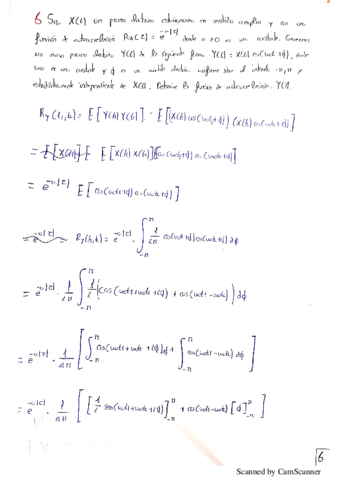 6 Sea X(t) un proceso aleatorio estacionario en sentido amplio y con una
función de autocorrelación Rx(τ) = e^{-α|τ|} donde α>0 es un constante. Generamos
un nuevo proceso aleatorio Y(t) de la siguiente forma Y(t) = X(t) cos(ωot+ϕ), donde
ωo es un constante y ϕ es un variable aleatoria uniforme sobre el intervalo -π,π y
estadísticamente independiente de X(t). Determine la función de autocorrelación Y(t).
Ry(t1,t2) = E[Y(t1) Y(t2)] = E[(X(t1) cos(ωot1+ϕ)) (X(t2) cos(ωot2+ϕ))]
= E[X(t1) X(t2)] [cos(ωot1+ϕ) cos(ωot2+ϕ)]
= e^{-α|τ|} E[cos(ωot1+ϕ) cos(ωot2+ϕ)]
Ry(t1,t2) = e^{-α|τ|} · ∫_{-π}^{π} 1/2π cos(ωot1+ϕ) cos(ωot2+ϕ) dϕ
= e^{-α|τ|} · 1/2π ∫_{-π}^{π} 1/2 (cos(ωot1+ωot2+2ϕ) + cos(ωot1-ωot2)) dϕ
= e^{-α|τ|} · 1/4π [∫_{-π}^{π} cos(ωot1+ωot2+2ϕ) dϕ + ∫_{-π}^{π} cos(ωot1-ωot2) dϕ]
= e^{-α|τ|} · 1/4π [[1/2 sen(ωot1+ωot2+2ϕ)]_{-π}^{π} + cos(ωot1-ωot2) [ϕ]_{-π}^{π}]
6
Scanned by CamScanner